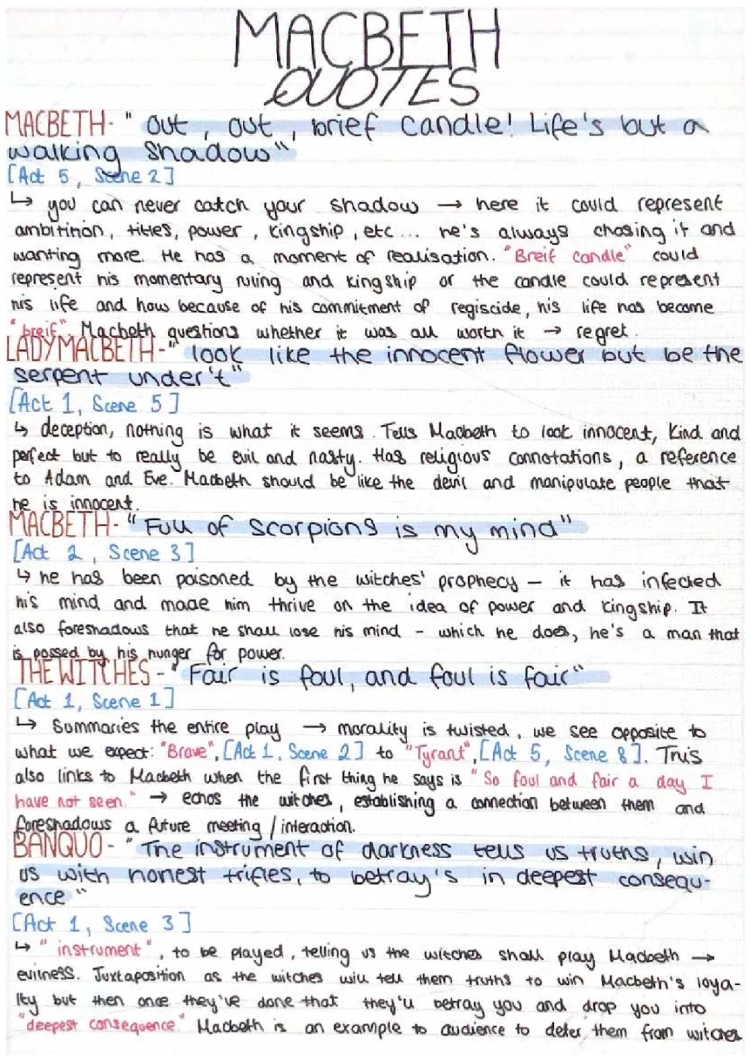 MACBETH
QUOTES
MACBETH- " out , out , brief candle! Life's but a
walking shadow"
[Act 5 , Scene 2]
↳ you can never catch your shadow → here it could represent
ambitinon, titles, power , kingship , etc ... he's always chasing it and
wanting more. He has a moment of realisation. "Breif candle" could
represent his momentary ruling and kingship or the candle could represent
his life and how because of his commitment of regiscide, his life has become
"breif". Macbeth questions whether it was all worth it → regret.
LADY MACBETH- " look like the innocent flower but be the
serpent under't"
[Act 1, Scene 5]
↳ deception, nothing is what it seems. Tells Macbeth to look innocent, kind and
perfect but to really be evil and nasty. Has religious connotations, a reference
to Adam and Eve. Macbeth should be like the devil and manipulate people that
he is innocent.
MACBETH- "Full of scorpions is my mind"
[Act 2 , Scene 3]
↳ he has been poisoned by the witches' prophecy – it has infected
his mind and made him thrive on the idea of power and kingship. It
also foreshadows that he shall lose his mind - which he does, he's a man that
is possed by his hunger for power.
THE WITCHES - " Fair is foul, and foul is fair"
[Act 1, Scene 1]
↳ Summaries the entire play → morality is twisted, we see opposite to
what we expect: "Brave", [Act 1, Scene 2] to "Tyrant", [Act 5, Scene 8]. This
also links to Macbeth when the first thing he says is "So foul and fair a day I
have not seen." → echos the witches, establishing a connection between them and
foreshadows a future meeting / interaction.
BANQUO- " The instrument of darkness tells us truths, win
us with honest trifles, to betray's in deepest consequ-
ence "
[Act 1, Scene 3]
↳ " instrument", to be played, telling us the witches shall play Macbeth →
evilness. Juxtaposition as the witches will tell them truths to win Macbeth's loya-
lty but then once they've done that they'll betray you and drop you into
"deepest consequence." Macbeth is an example to audience to deter them from witches